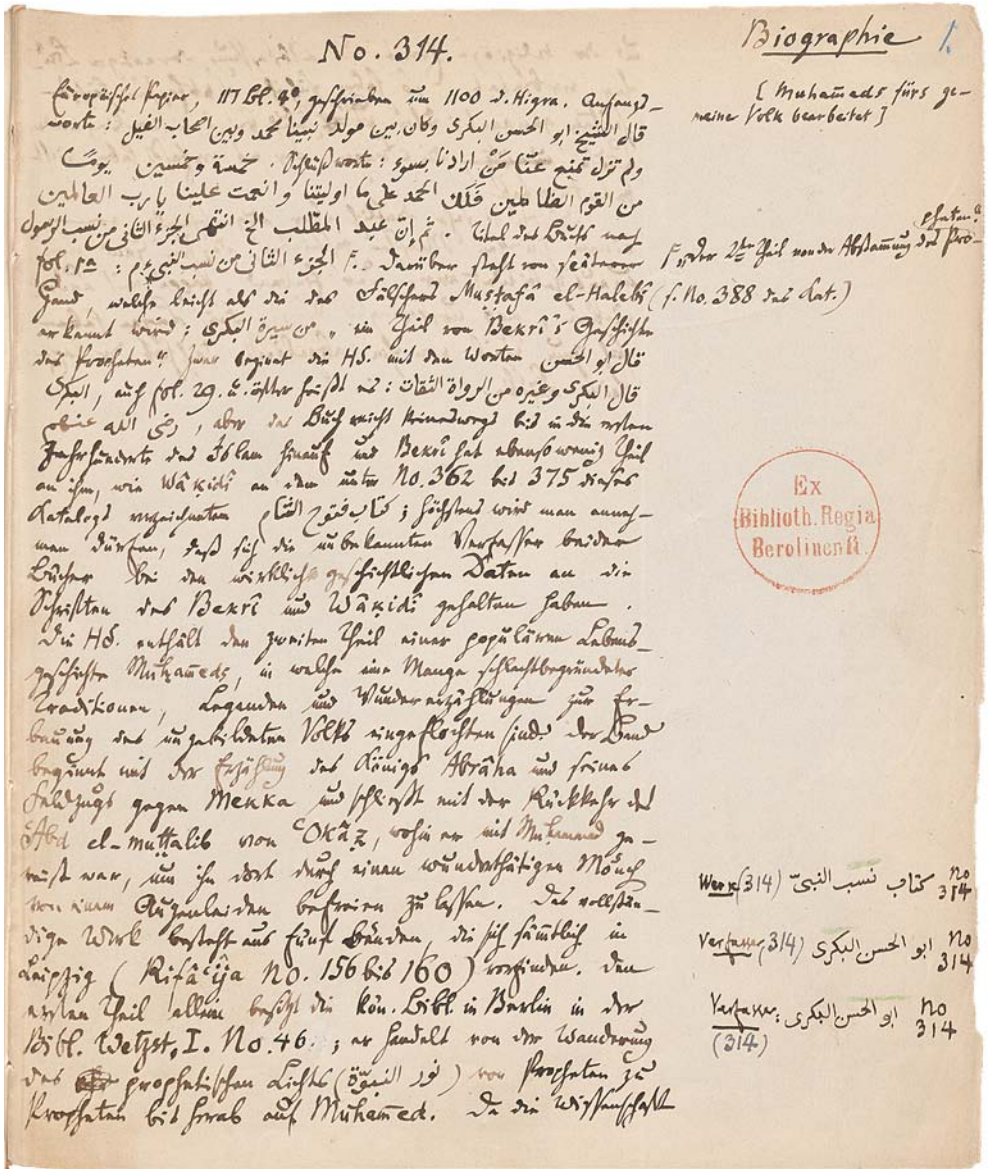 No. 314.
Biographie 1.
[Muhameds fürs ge-
meine Volk bearbeitet]
Europäisches Papier, 117 Bl. 4°, geschrieben um 1100 d. Higra. Anfangs-
worte: قال الشيخ ابو الحسن البكرى وكان بين مولد نبينا محمد وبين اصحاب الفيل
خمسة وخمسين يومًا. Schlußworte: ولم تزل تمنع عنّا مَنْ ارادنا بسوء
من القوم الظالمين فلك الحمد على ما اوليتنا وانعمت علينا يا رب العالمين
ثم إنّ عبد المطّلب الخ انتهى الجزء الثانى من نسب الرسول. Titel des Buchs nach
fol. 1a: الجزء الثانى من نسب النبى F. Darüber steht von späterer
F „der 2te Theil von der Abstammung des Pro-
pheten“
Hand, welche leicht als die des Fälschers Mustafâ el-Halebî (s. No. 388 des Kat.)
erkannt wird: من سيرة البكرى „ein Theil von Bekrî's Geschichte
des Propheten“. Zwar beginnt die HS. mit den Worten قال ابو الحسن
البكرى, auch fol. 29. u. öfter heißt es: قال البكرى وغيره من الرواة الثقات
رضى الله عنهم, aber das Buch reicht keineswegs bis in die ersten
Jahrhunderte des Islam hinauf und Bekrî hat ebensowenig Theil
an ihm, wie Wâkidî an dem unter No. 362 bis 375 dieses
Katalogs verzeichneten كتاب فتوح الشام; höchstens wird man anneh-
men dürfen, daß sich die unbekannten Verfasser beider
Bücher bei den wirklich geschichtlichen Daten an die
Schriften des Bekrî und Wâkidî gehalten haben.
Die HS. enthält den zweiten Theil einer populären Lebens-
geschichte Muhameds, in welche eine Menge schlechtbegründeter
Traditionen, Legenden und Wundererzählungen zur Er-
bauung des ungebildeten Volks eingeflochten sind. Der Band
beginnt mit der Erzählung des Königs Abrâha und seines
Feldzugs gegen Mekka und schließt mit der Rückkehr des
ʿAbd el-muttalib von ʿOkâz, wohin er mit Muhammed ge-
reist war, um ihn dort durch einen wunderthätigen Mönch
von einem Augenleiden befreien zu lassen. Das vollstän-
dige Werk besteht aus fünf Bänden, die sich sämmtlich in
Leipzig (Rifâʿîja No. 156 bis 160) vorfinden. Den
ersten Theil allein besitzt die kön. Bibl. in Berlin in der
Bibl. Wetzst. I. No. 46.; er handelt von der Wanderung
des prophetischen Lichts (نور النبوّة) von Propheten zu
Propheten bis herab auf Muhammed. Da die Wissenschaft
Ex
Biblioth. Regia
Berolinenſi.
Werk (314) كتاب نسب النبىّ No 314
Verfasser (314) ابو الحسن البكرى No 314
Verfasser: ابو الحسن البكرى No 314
(314)